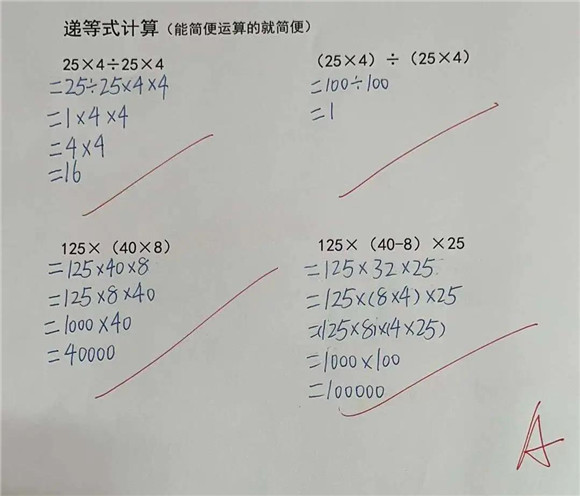 递等式计算（能简便运算的就简便）
25×4÷25×4
=25÷25×4×4
=1×4×4
=4×4
=16
（25×4）÷（25×4）
=100÷100
=1
125×（40×8）
=125×40×8
=125×8×40
=1000×40
=40000
125×（40-8）×25
=125×32×25
=125×(8×4)×25
=(125×8)×(4×25)
=1000×100
=100000
A